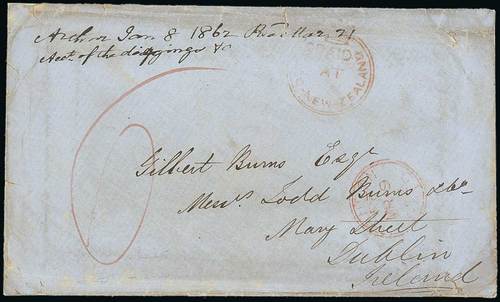 Archer Jan 8, 1862 Rec'd Mar 21
Acct. of the diggings &c
PAID
AT
NEW ZEALAND
Gilbert Burns Esqr
Messrs Todd Burns & Co
Mary Street
Dublin
Ireland